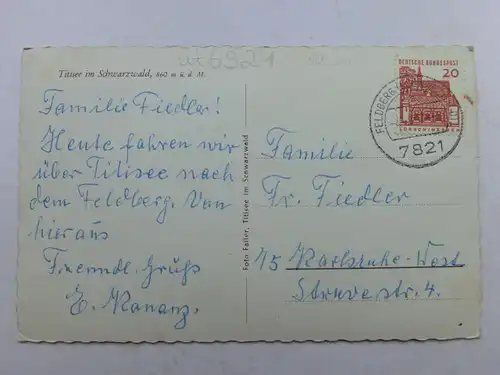 Titisee im Schwarzwald, 860 m ü. d. M.
Familie Fiedler!
Heute fahren wir
über Titisee nach
dem Feldberg. Von
hieraus
Freundl. Grüße
E. Kananz.
Foto Faller, Titisee im Schwarzwald
DEUTSCHE BUNDESPOST
20
LORSCH/HESSEN
FELDBERG
7821
Familie
Fr. Fiedler
75 Karlsruhe-West
Struvestr. 4.